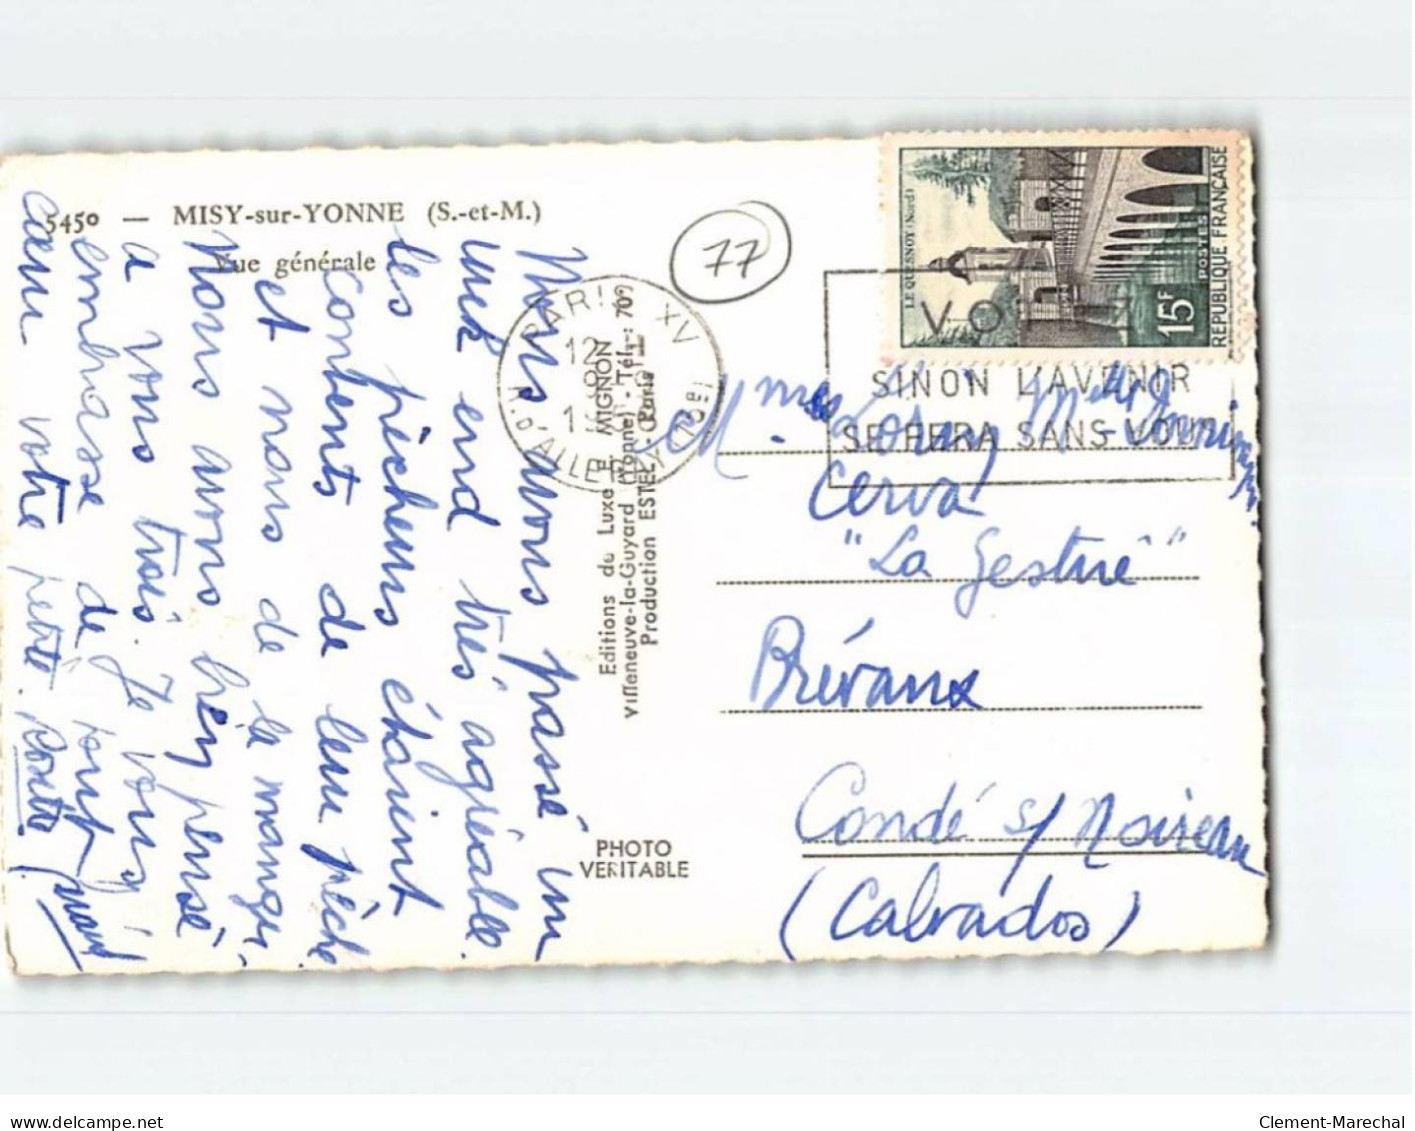 5450 — MISY-sur-YONNE (S.-et-M.)
Vue générale
77
Nous avons passé un
week end très agréable.
les pêcheurs étaient
contents de leur pêche
et nous de la manger.
Nous avons bien pensé
a vous trois. Je vous
embrasse de tout
cœur votre petite
Editions de Luxe E. MIGNON
Villeneuve-la-Guyard (Yonne) - Tél. : 70
Production ESTEL - Paris
PHOTO
VERITABLE
PARIS XV
12
R. D'ALLERAY (15e)
LE QUESNOY (Nord)
15F
POSTES
REPUBLIQUE FRANÇAISE
VO
SINON L'AVENIR
SE FERA SANS VOUS
Mmes Melle
Cerval
"La Gestrie"
Brévaux
Condé s/ Noireau
(Calvados)
delcampe.net
Clement-Marechal